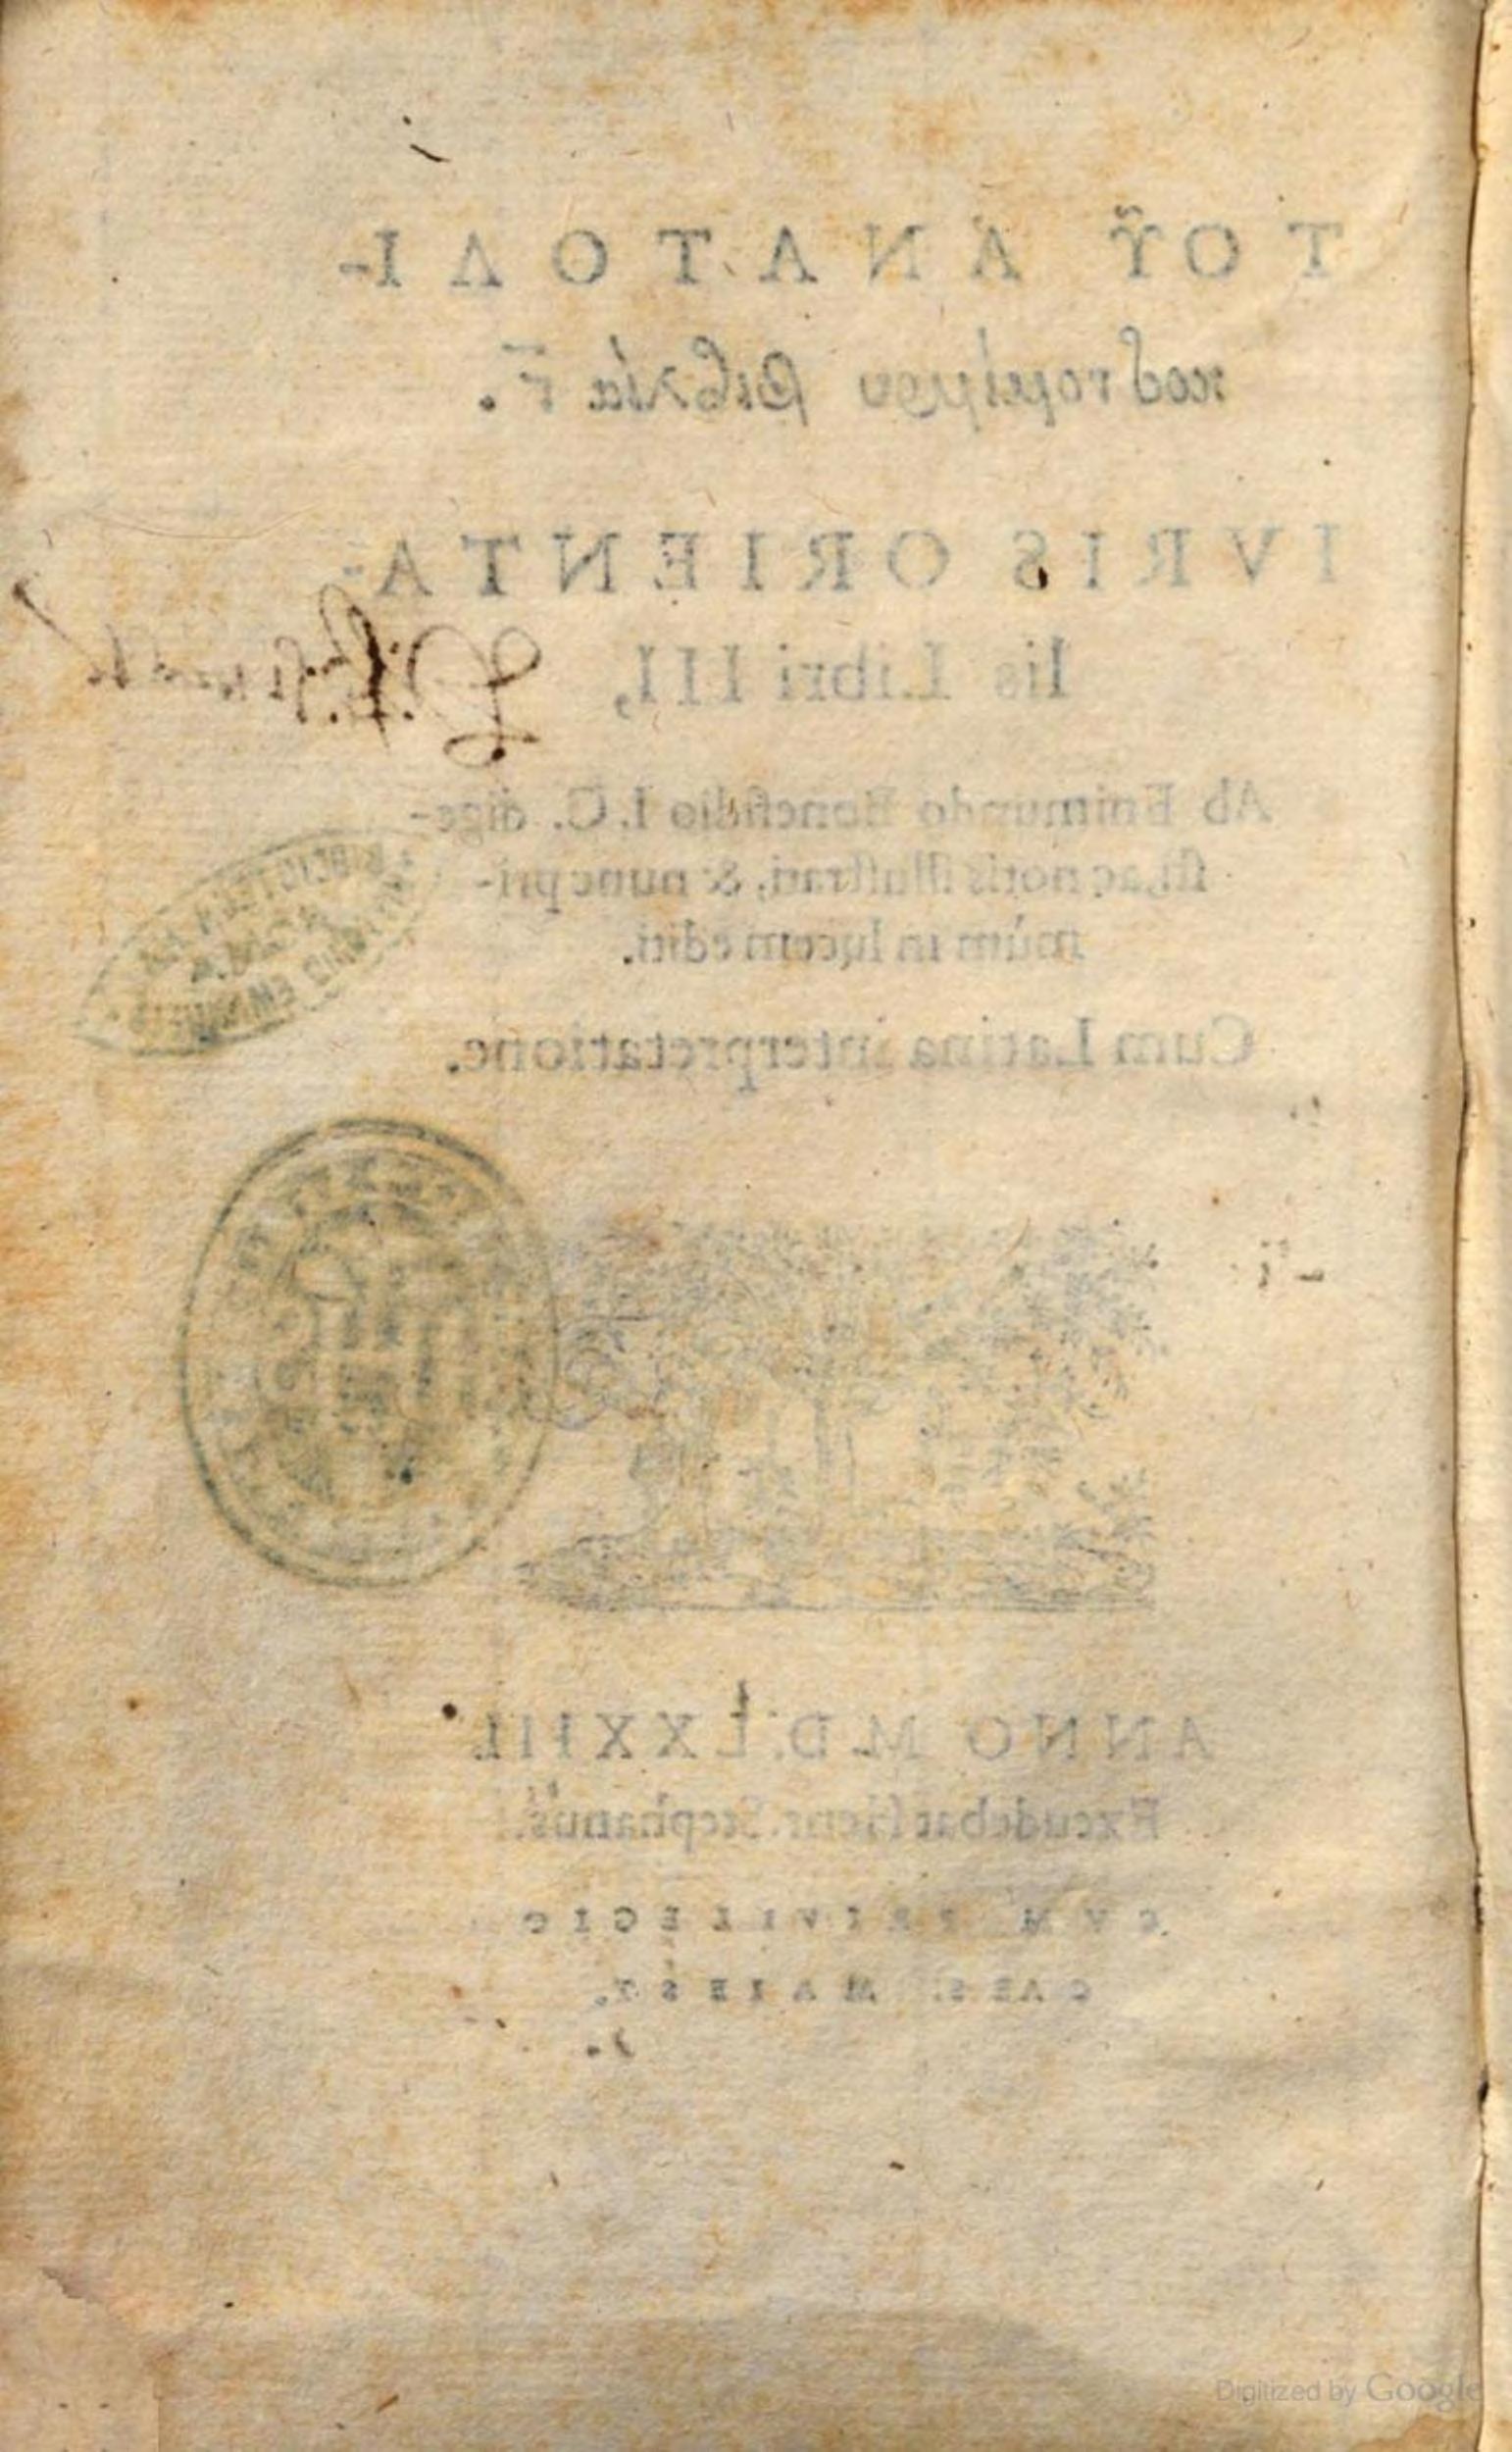 ΤΟΥ͂ ἈΝΑΤΟΛΙ-
κοῦ νομίμου βιβλία γ̅.
IVRIS ORIENTA-
lis Libri III,
Ab Enimundo Bonefidio I.C. dige-
sti, ac notis illustrati, & nunc pri-
mùm in lucem editi.
Cum Latina interpretatione.
ANNO M.D.LXXIII.
Excudebat Henr. Stephanus.
CVM PRIVILEGIO
CAES. MAIEST.
Digitized by Google